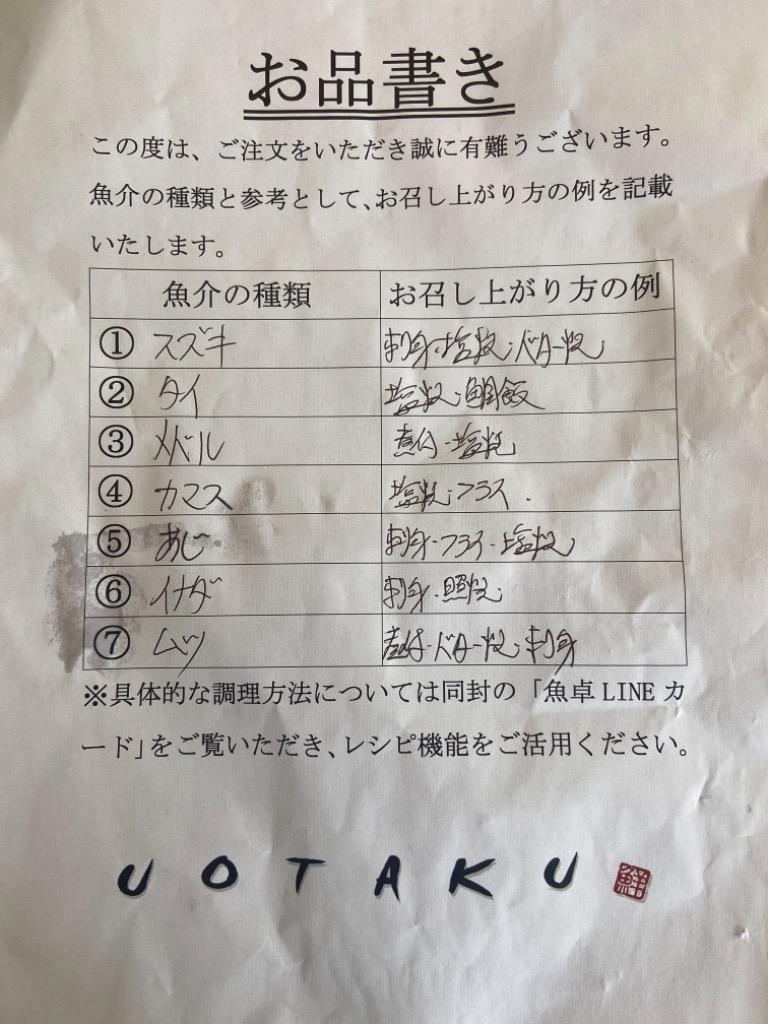 お品書き
この度は、ご注文をいただき誠に有難うございます。
魚介の種類と参考として、お召し上がり方の例を記載
いたします。
魚介の種類 お召し上がり方の例
① スズキ 刺身・塩焼・バター焼
② タイ 塩焼・鯛飯
③ メバル 煮付・塩焼
④ カマス 塩焼・フライ
⑤ あじ 刺身・フライ・塩焼
⑥ イナダ 刺身・照焼
⑦ ムツ 煮付・バター焼・刺身
※具体的な調理方法については同封の「魚卓 LINE カ
ード」をご覧いただき、レシピ機能をご活用ください。
UOTAKU